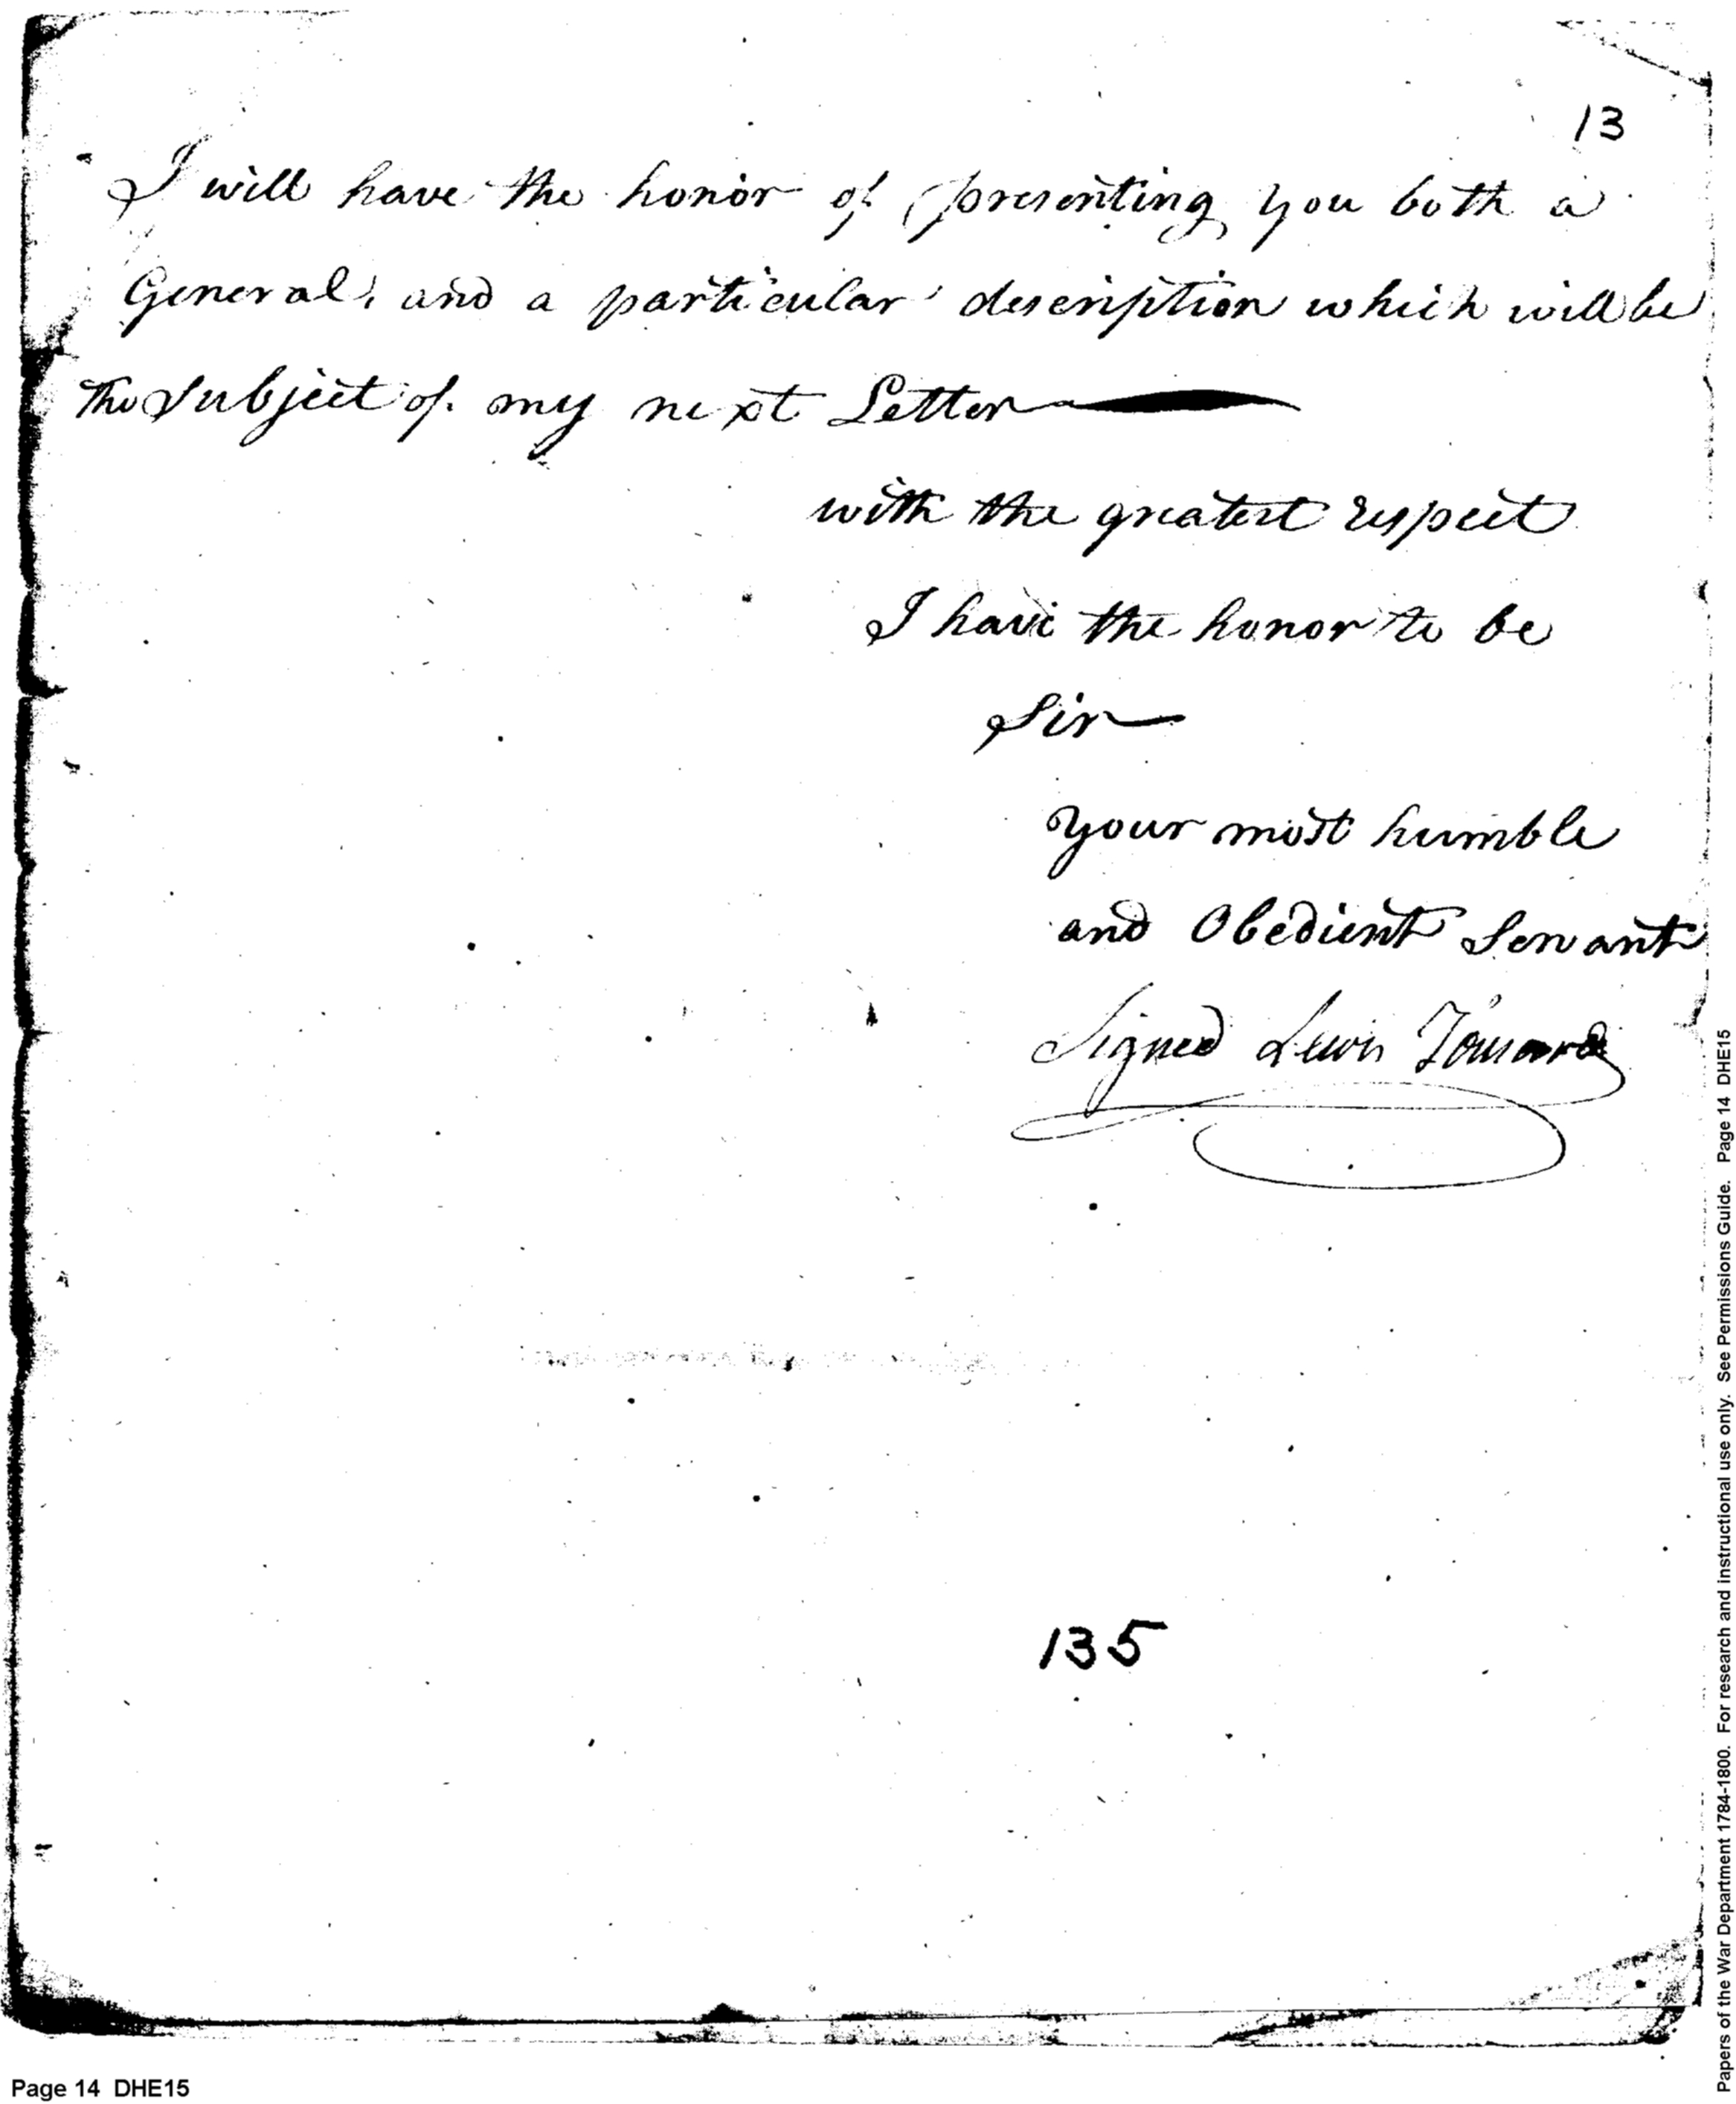 13
I will have the honor of presenting you both a
General, and a particular description which will be
the Subject of my next Letter
with the greatest respect
I have the honor to be
Sir
Your most humble
and Obedient Servant
Signed Lewis Tousard
135
Page 14 DHE15
Papers of the War Department 1784-1800. For research and instructional use only. See Permissions Guide. Page 14 DHE15